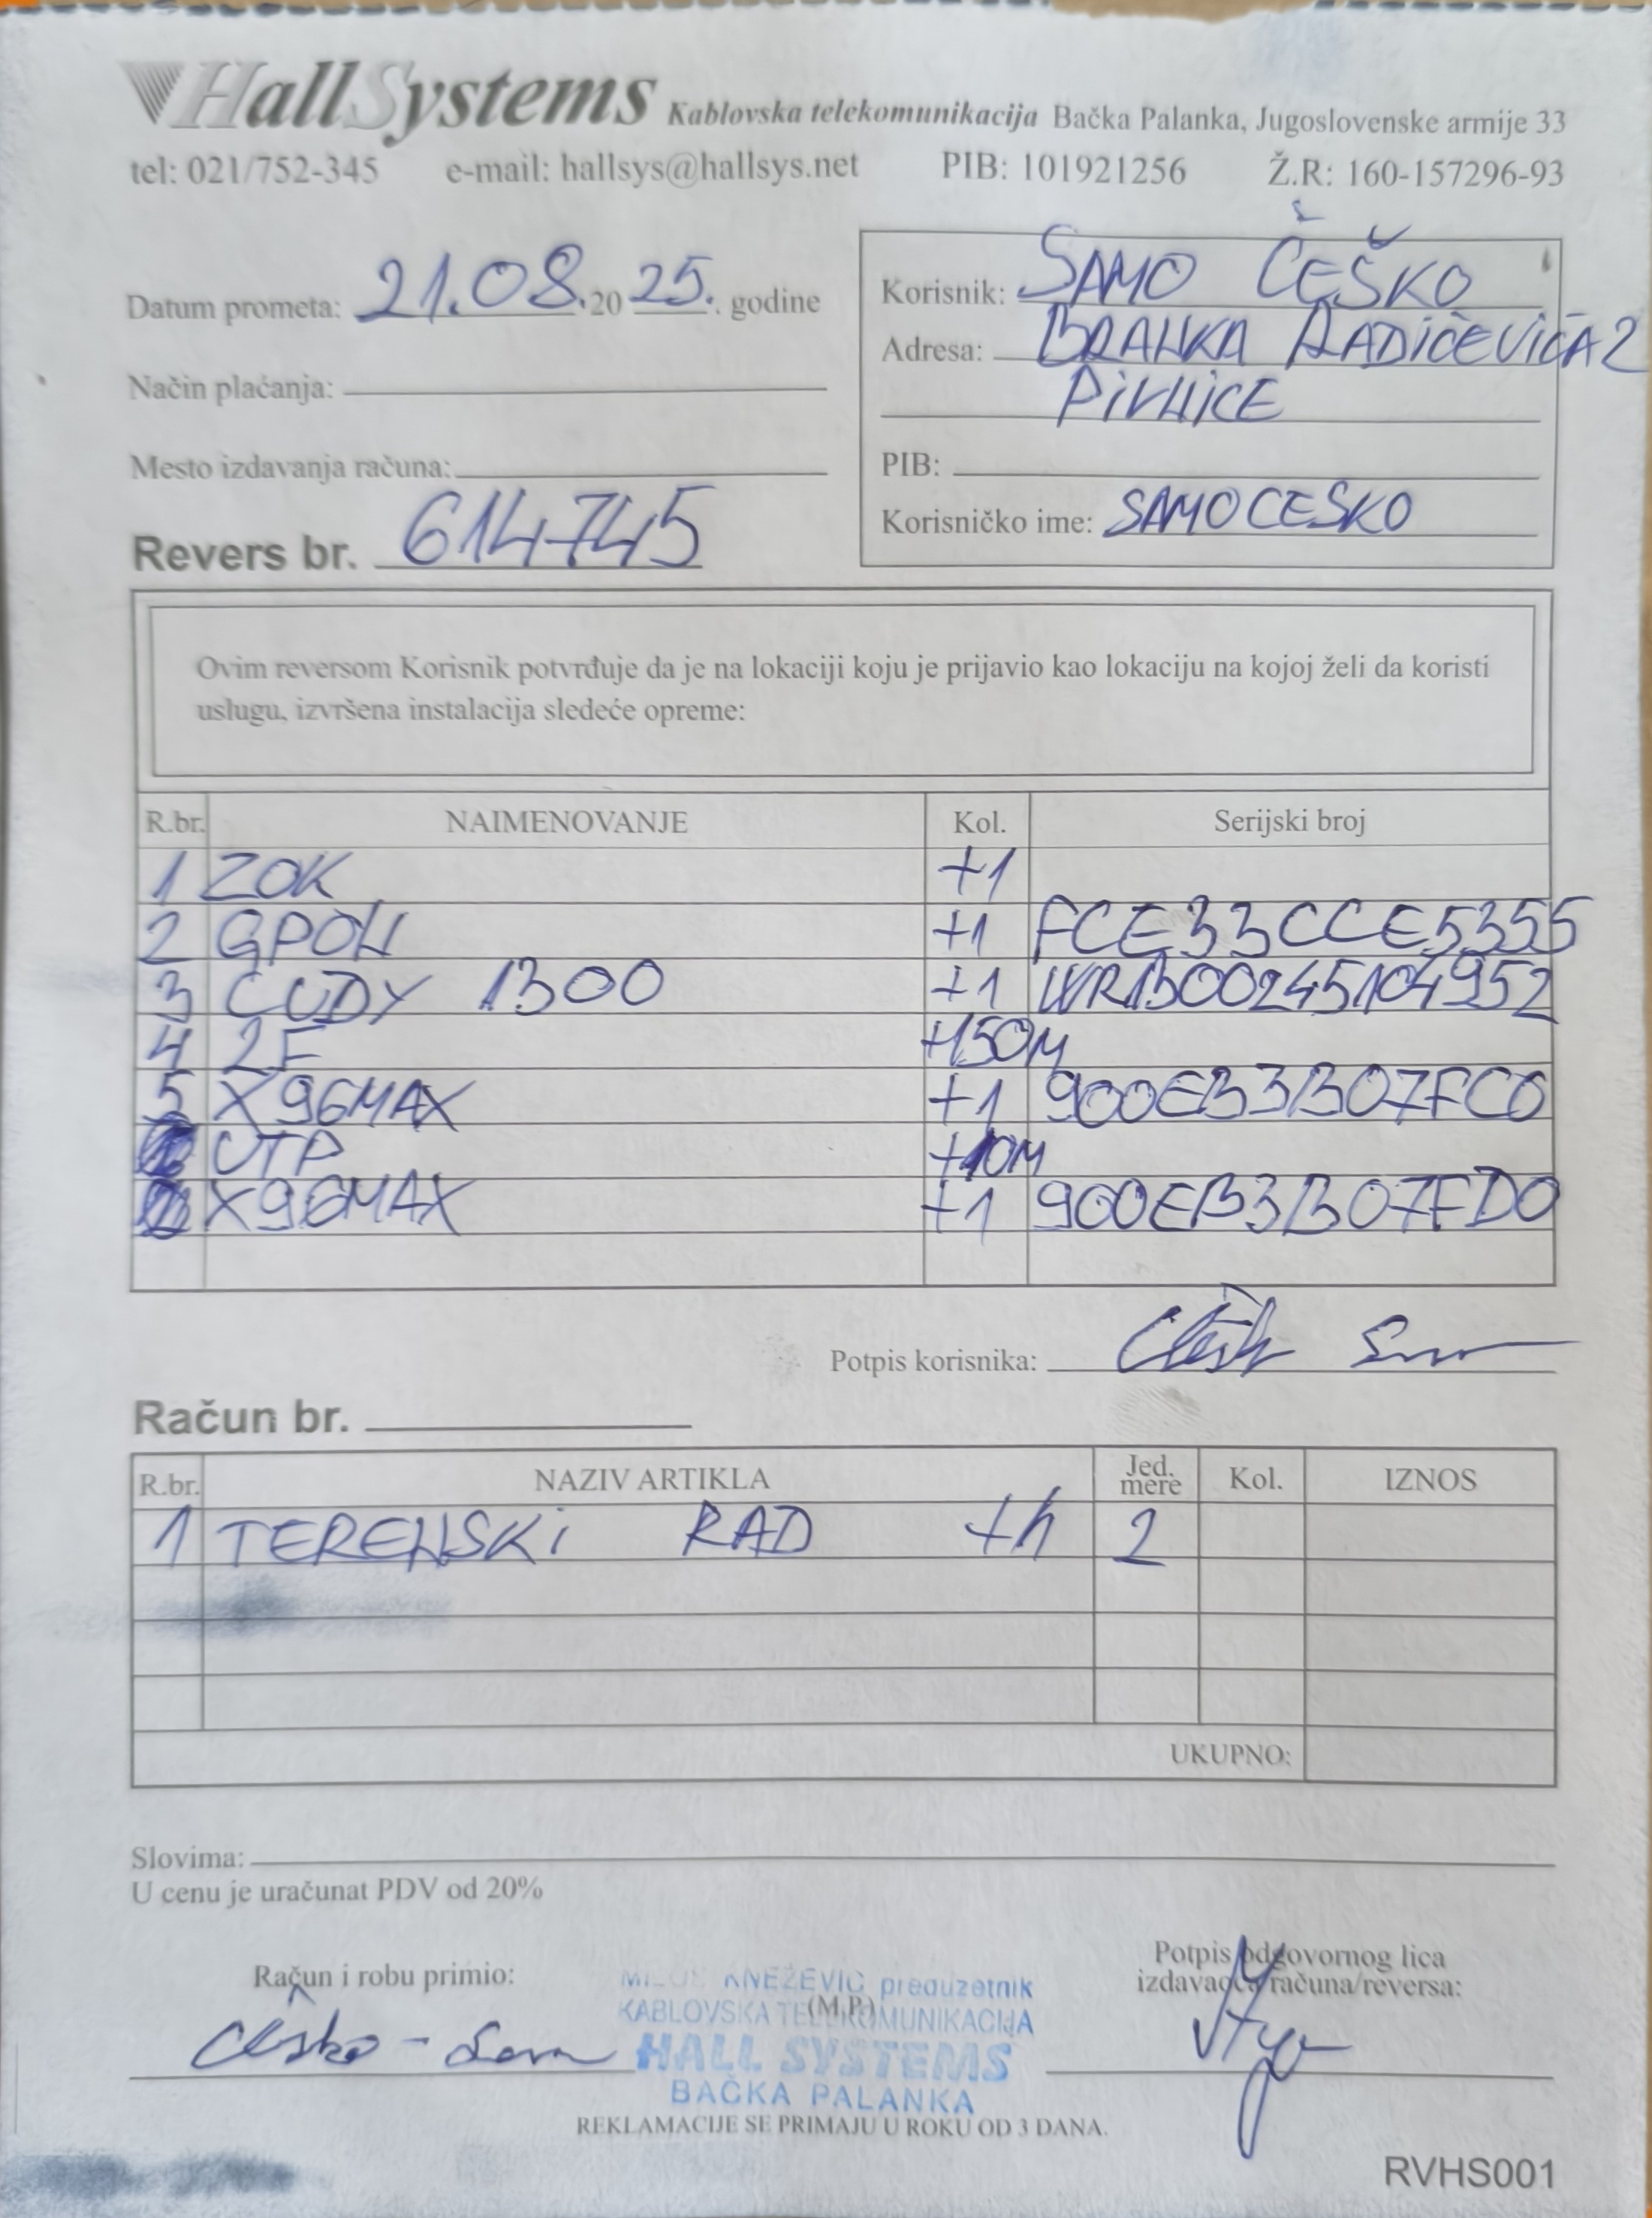 HallSystems Kablovska telekomunikacija Bačka Palanka, Jugoslovenske armije 33
tel: 021/752-345 e-mail: hallsys@hallsys.net PIB: 101921256 Ž.R: 160-157296-93
Datum prometa: 21.08.2025. godine
Način plaćanja:
Mesto izdavanja računa:
Revers br. 614745
Korisnik: SAMO ČEŠKO
Adresa: BRANKA RADIČEVIĆA 2
PIVNICE
PIB:
Korisničko ime: SAMOCESKO
Ovim reversom Korisnik potvrđuje da je na lokaciji koju je prijavio kao lokaciju na kojoj želi da koristi
uslugu, izvršena instalacija sledeće opreme:
R.br. NAIMENOVANJE Kol. Serijski broj
1 ZOK +1
2 GPON +1 FCE33CCE5355
3 CUDY 1300 +1 WR1300245104952
4 2F +150M
5 X96MAX +1 900EB3B07FC0
UTP +10M
X96MAX +1 900EB3B07FD0
Potpis korisnika:
Račun br.
R.br. NAZIV ARTIKLA Jed. mere Kol. IZNOS
1 TERENSKI RAD +h 2
UKUPNO:
Slovima:
U cenu je uračunat PDV od 20%
Račun i robu primio:
Češko - Samo
MILOŠ KNEŽEVIĆ preduzetnik
KABLOVSKA TELEKOMUNIKACIJA
(M.P.)
HALL SYSTEMS
BAČKA PALANKA
Potpis odgovornog lica
izdavaoca računa/reversa:
REKLAMACIJE SE PRIMAJU U ROKU OD 3 DANA.
RVHS001